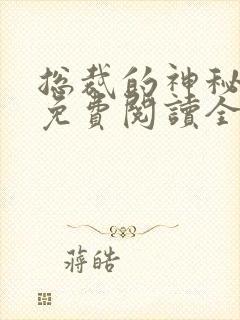 总裁的神秘
免費閱讀全
蔣皓